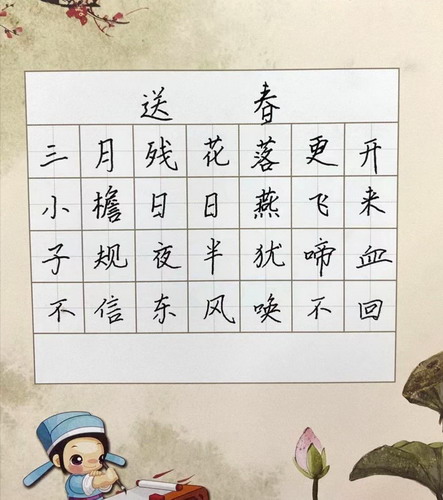 送春
三月残花落更开
小檐日日燕飞来
子规夜半犹啼血
不信东风唤不回